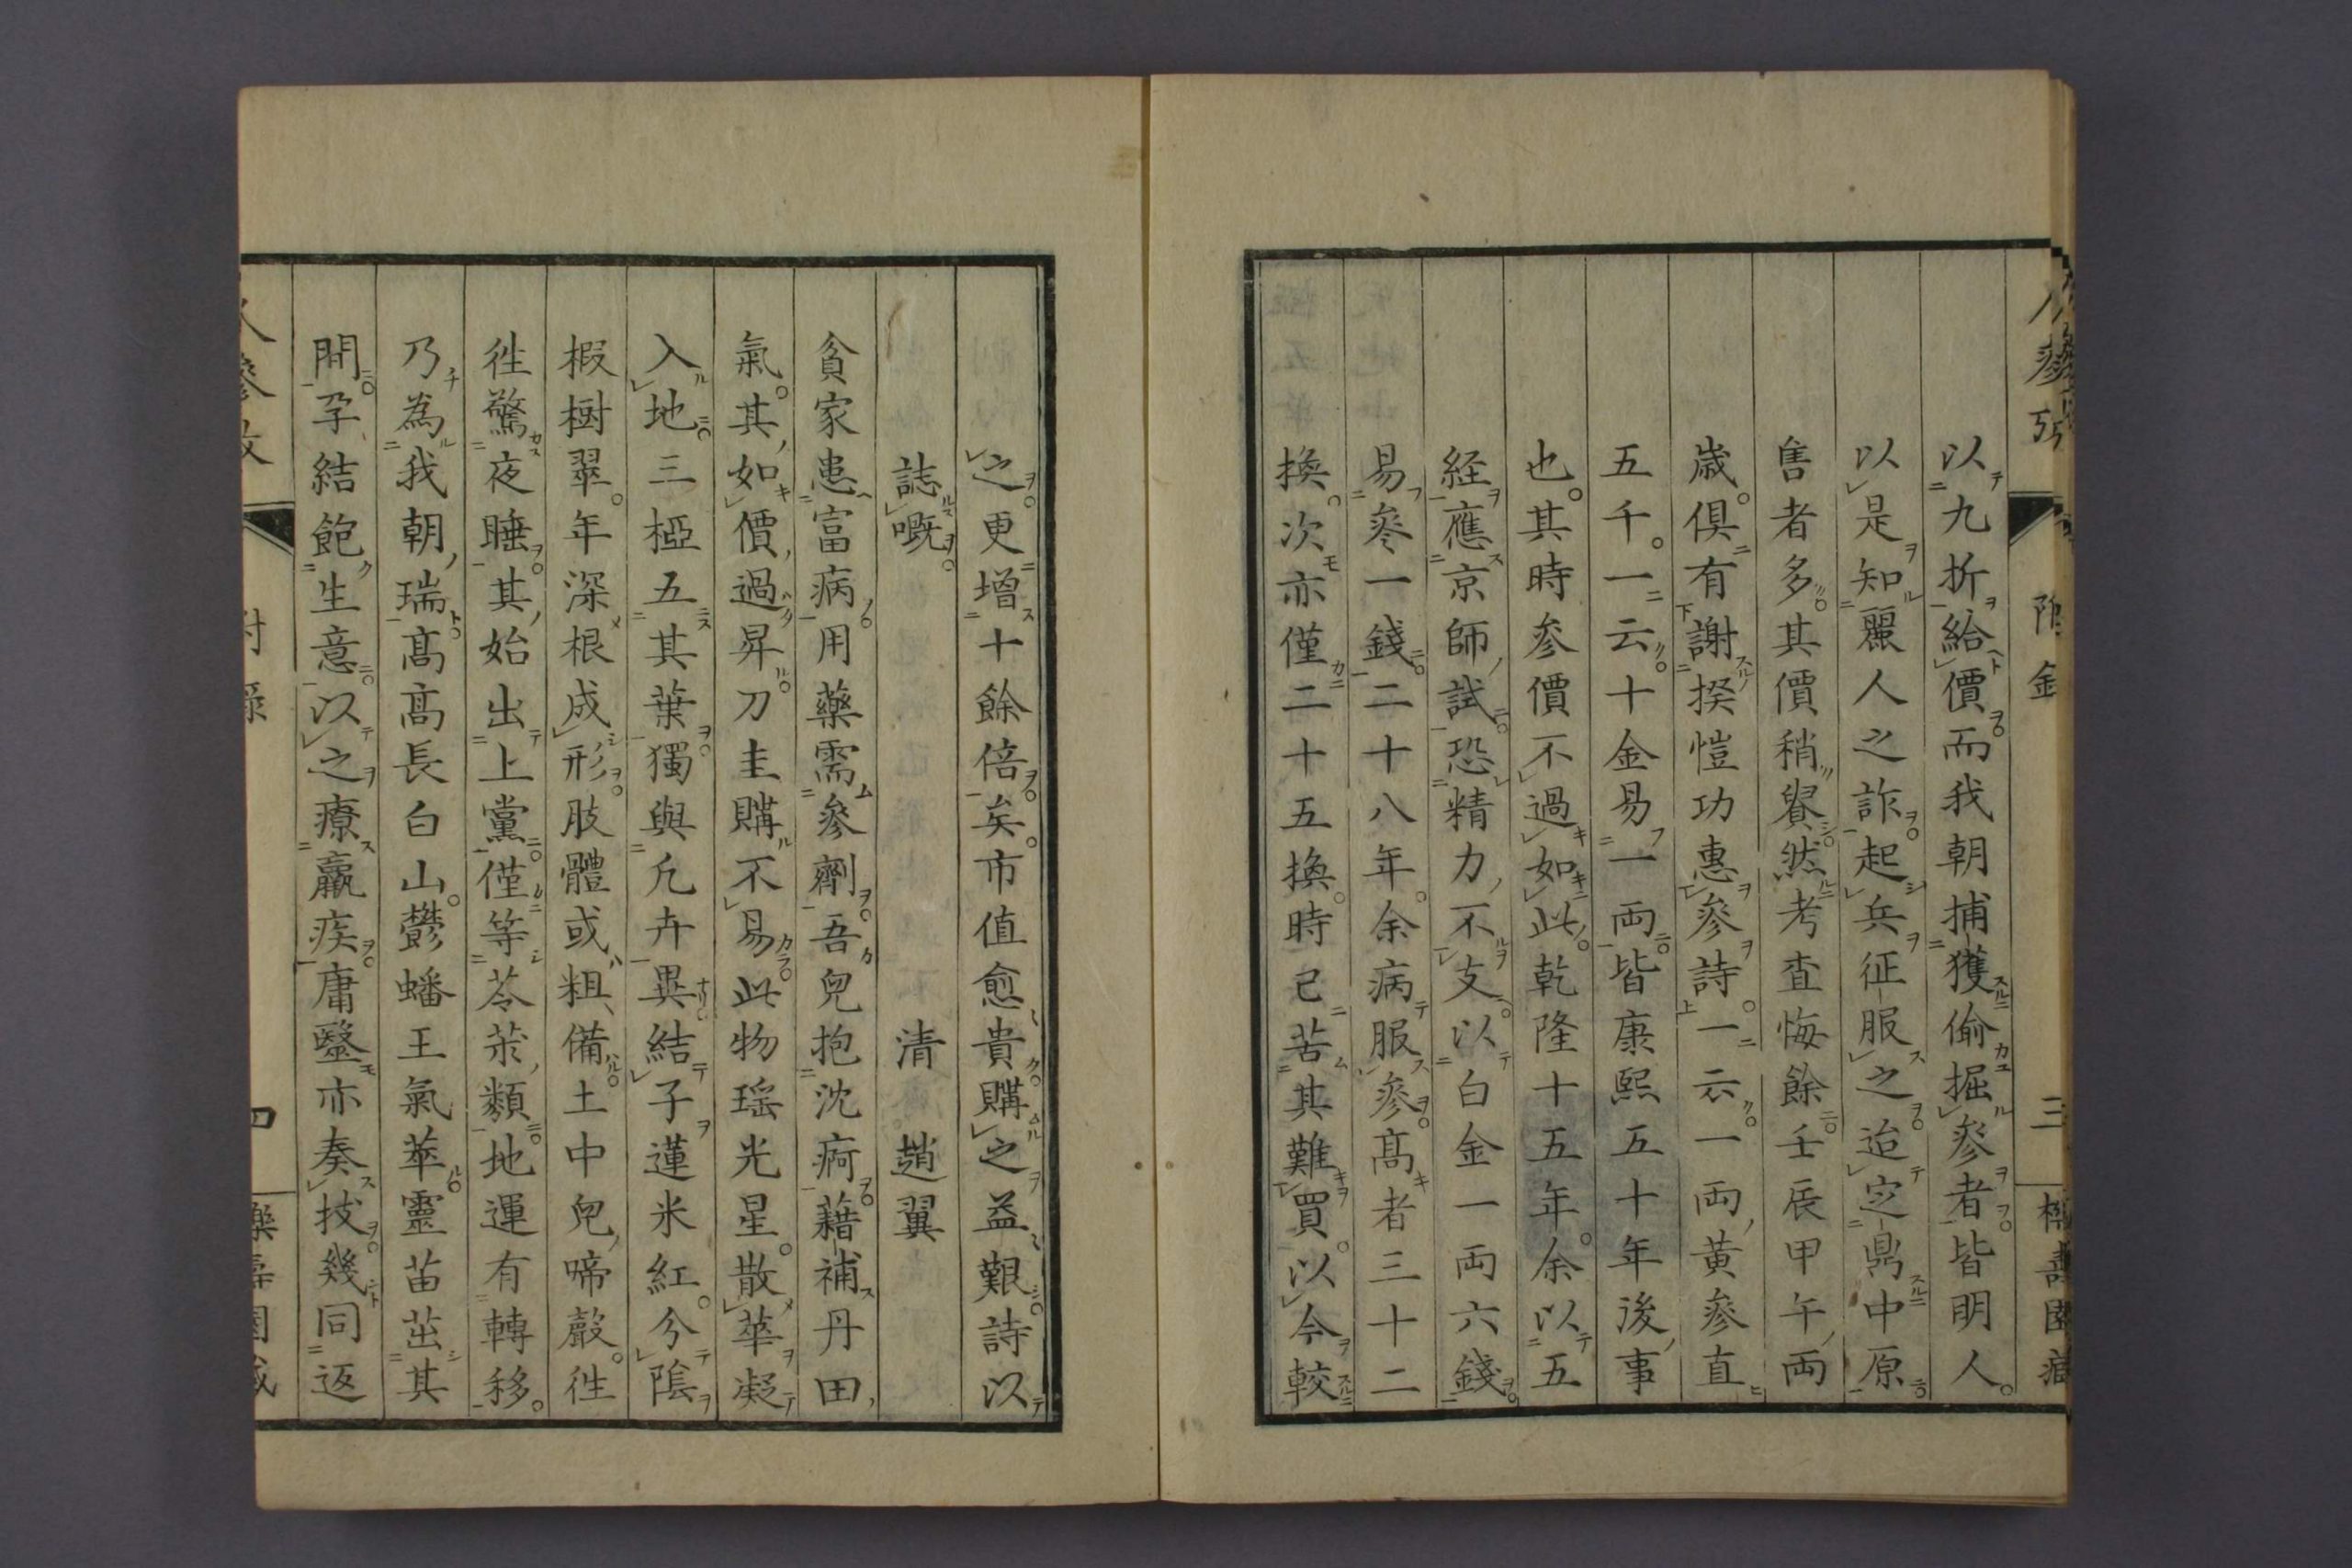 以九折給價而我朝捕獲偷掘參者皆明人
以是知麗人之詐起兵征服之迨定鼎中原
售者多其價稍貴然考查悔餘壬辰甲午両
歳倶有謝揆愷功惠參詩一云一両黃參直
五千一云十金易一両皆康熙五十年後事
也其時參價不過如此乾隆十五年余以五
経應京師試恐精力不支以白金一両六錢
易參一錢二十八年余病服參高者三十二
換次亦僅二十五換時已苦其難買以今較
之更增十餘倍矣市值愈貴購之益艱詩以
誌嘅　清　趙翼
貧家患富病用藥需參劑吾兒抱沈疴藉補丹田
氣其如價過昇刀圭購不易此物瑶光星散華凝
入地三椏五其葉獨與凢卉異結子蓮米紅分陰
椵樹翠年深根成形肢體或粗備土中兒啼聲徃
徃驚夜睡其始出上黨僅等苓朮類地運有轉移
乃為我朝瑞高高長白山鬱蟠王氣萃靈苗茁其
間孕結飽生意以之療羸疾庸毉亦奏技幾同返